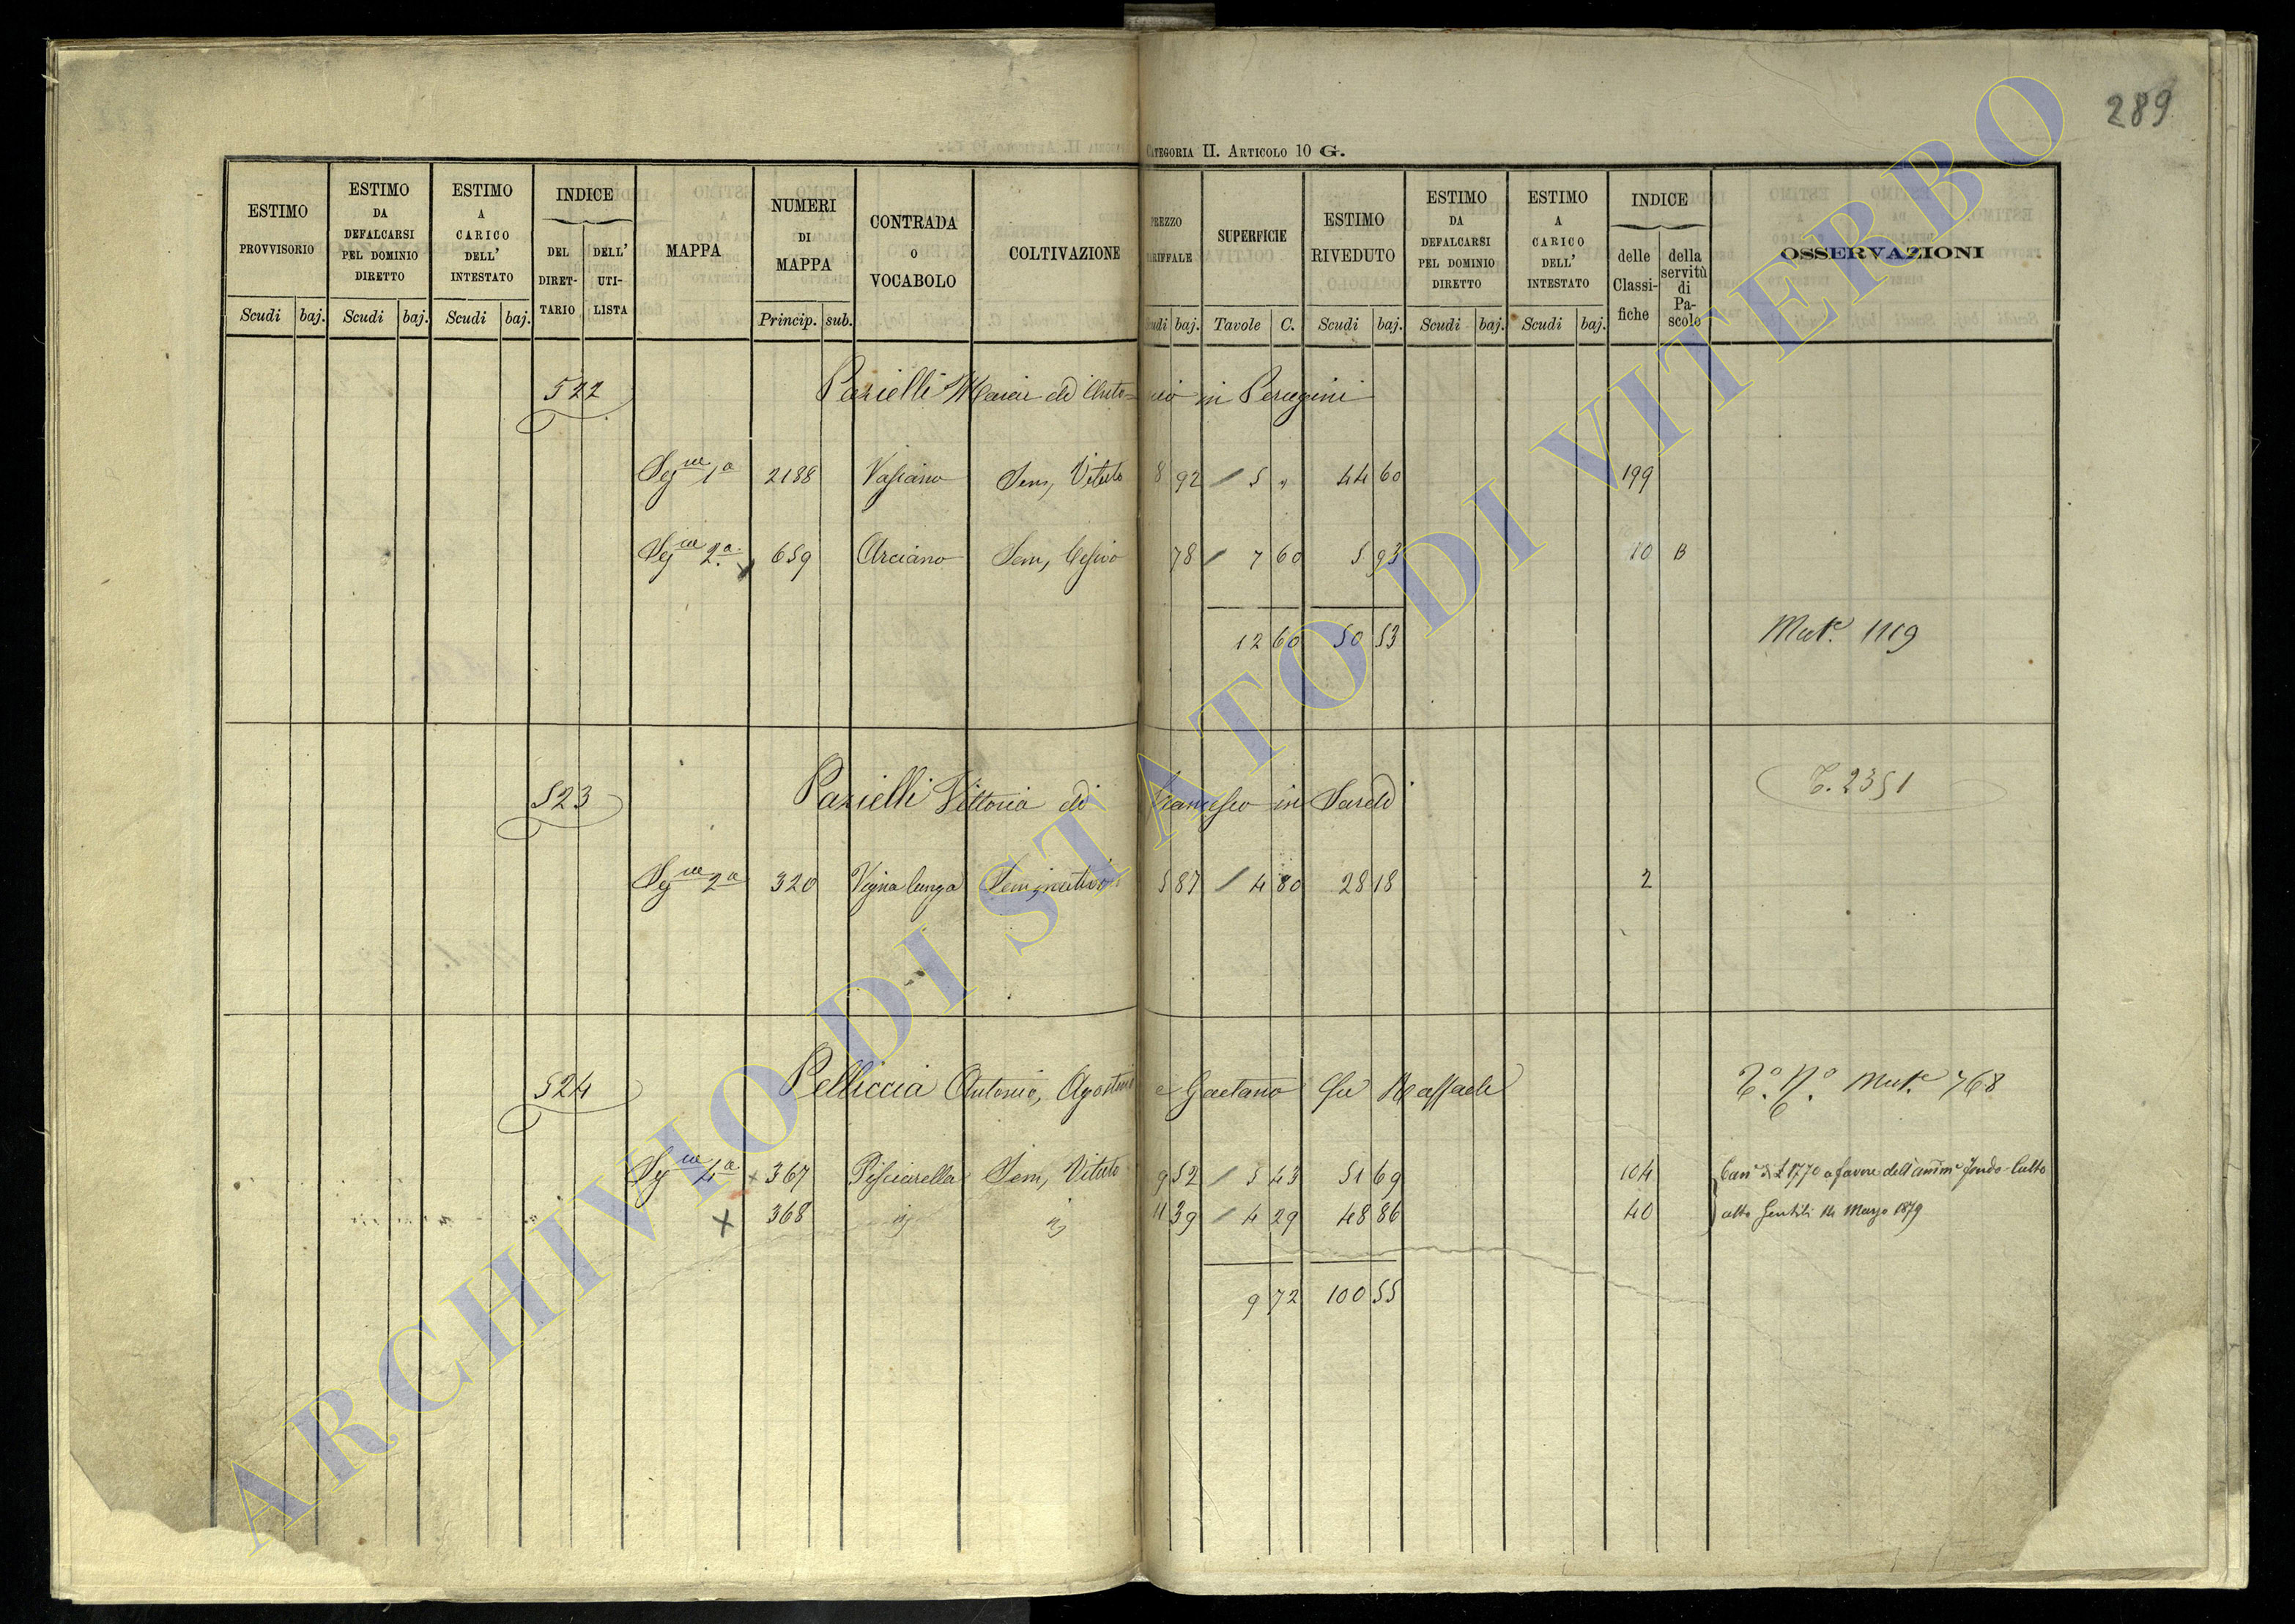 289
CATEGORIA II. ARTICOLO 10 G.
ESTIMO PROVVISORIO Scudi baj.
ESTIMO DA DEFALCARSI PEL DOMINIO DIRETTO Scudi baj.
ESTIMO A CARICO DELL' INTESTATO Scudi baj.
INDICE DEL DIRETTARIO DELL' UTILISTA
MAPPA
NUMERI DI MAPPA Princip. sub.
CONTRADA O VOCABOLO
COLTIVAZIONE
PREZZO baj.
SUPERFICIE Tavole C.
ESTIMO RIVEDUTO Scudi baj.
ESTIMO DA DEFALCARSI PEL DOMINIO DIRETTO Scudi baj.
ESTIMO A CARICO DELL' INTESTATO Scudi baj.
INDICE delle Classifiche della servitù di Pascolo
OSSERVAZIONI
522 Pazielli Maria di Anto=nio in Perugini
Segne 1a 2188 Vasciano Sem, Vitato 8 92 / 5 „ 44 60 199
Segne 2a 659 Arciano Sem, Cesivo 78 / 7 60 5 93 10 B
12 60 50 53 Mute 1119
523 Pazielli Vittoria di Francesco in Saredi T. 2351
Segne 2a 320 Vigna lunga 5 87 / 4 80 28 18 2
524 Pelliccia Antonio, Agostino e Gaetano fu Raffaele To. No. Mute 768
Segne 4a x 367 Pisciarella Sem, Vitato 9 52 / 5 43 51 69 104 Cane di £ 17,70 a favore dell' ammne fondo-Culto
x 368 11 39 / 4 29 48 86 40 atto Gentili 14 Marzo 1879
9 72 100 55
ARCHIVIO DI STATO DI VITERBO